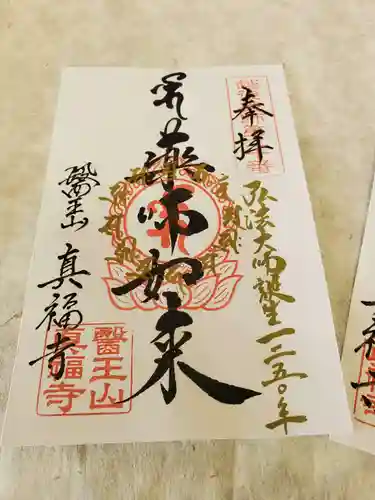 奉拝
弘法大師誕生一二五〇年
薬師如来
醫王山
真福寺
醫王山
真福寺